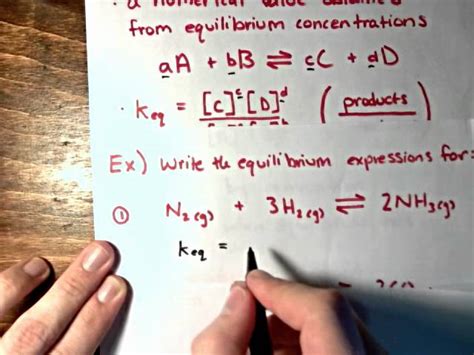 from equilibrium concentrations
aA + bB ⇌ cC + dD
· Keq = [C]ᶜ[D]ᵈ (products)
Ex) Write the equilibrium expressions for:
① N₂(g) + 3H₂(g) ⇌ 2NH₃(g)
Keq =